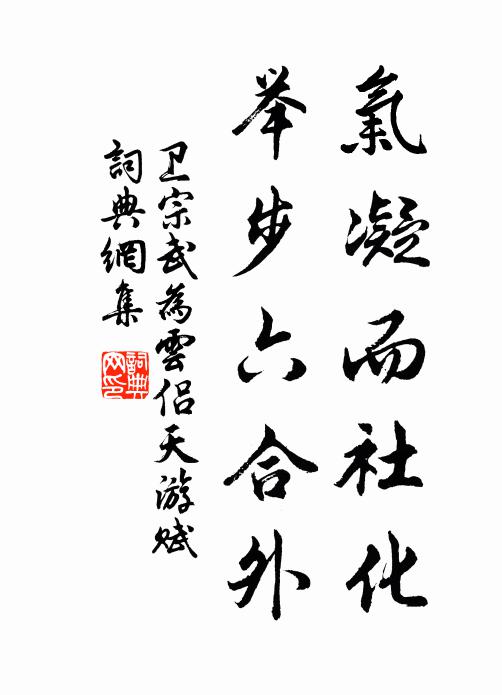 氣凝而社化
举步六合外
卫宗武為雲侣天游赋
詞典網集
詞典
网印